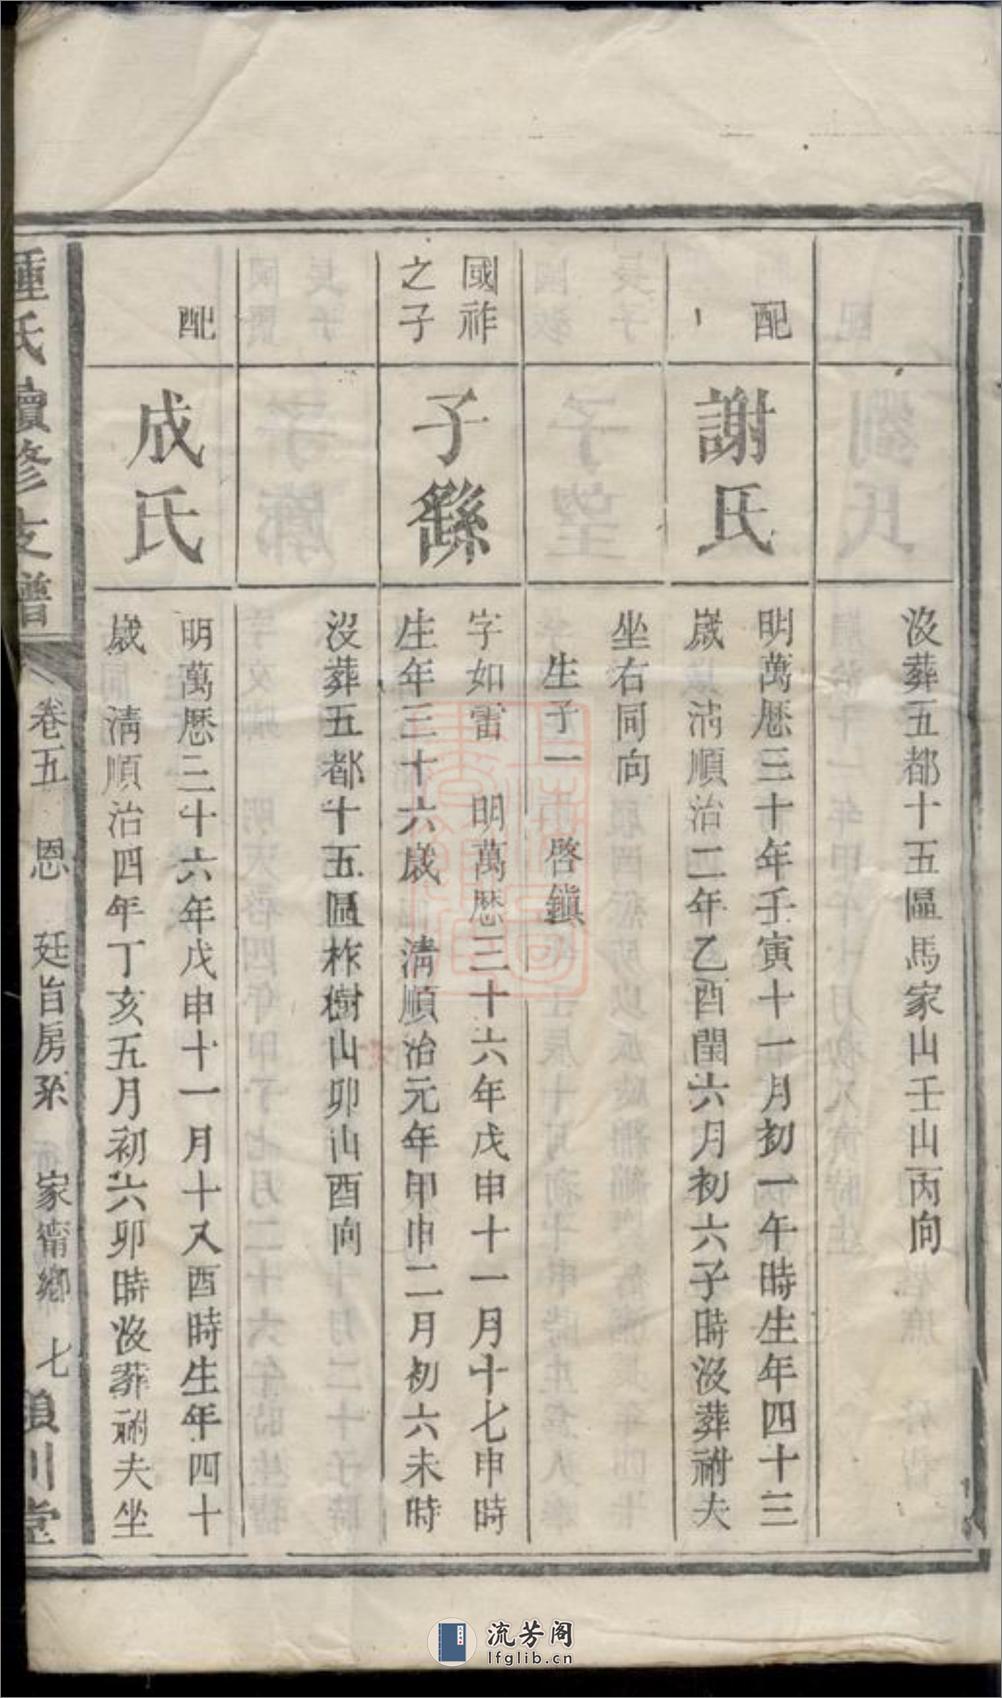 沒葬五都十五區馬家山壬山丙向
配
謝氏
明萬厯三十年壬寅十一月初一午時生年四十三
歲 清順治二年乙酉閏六月初六子時沒葬祔夫
坐右同向
生子一 啓鎮
國祚
之子
子繇
字如雷 明萬厯三十六年戊申十一月十七申時
生年三十六歲 清順治元年甲申二月初六未時
沒葬五都十五區柞樹山卯山酉向
配
成氏
明萬厯三十六年戊申十一月十八酉時生年四十
歲 清順治四年丁亥五月初六卯時沒葬祔夫坐
鍾氏續修支譜
卷五 恩 廷旨房系 家甯鄉 七
潁川堂
流芳阁
lfglib.cn